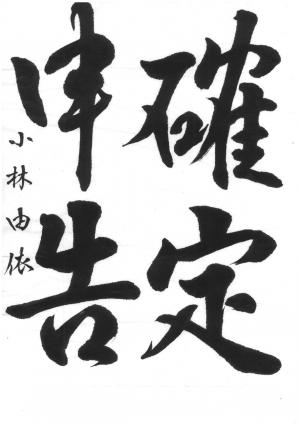 確定
申告
小林由依